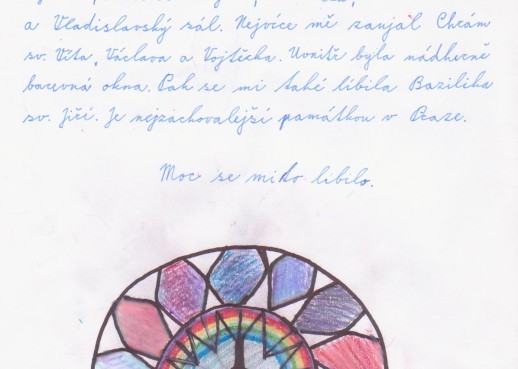 a Vladislavský sál. Nejvíce mě zaujal Chrám
sv. Víta, Václava a Vojtěcha. Uvnitř byla nádherně
barevná okna. Pak se mi také líbila Bazilika
sv. Jiří. Je nejzachovalejší památkou v Praze.
Moc se mi to líbilo.